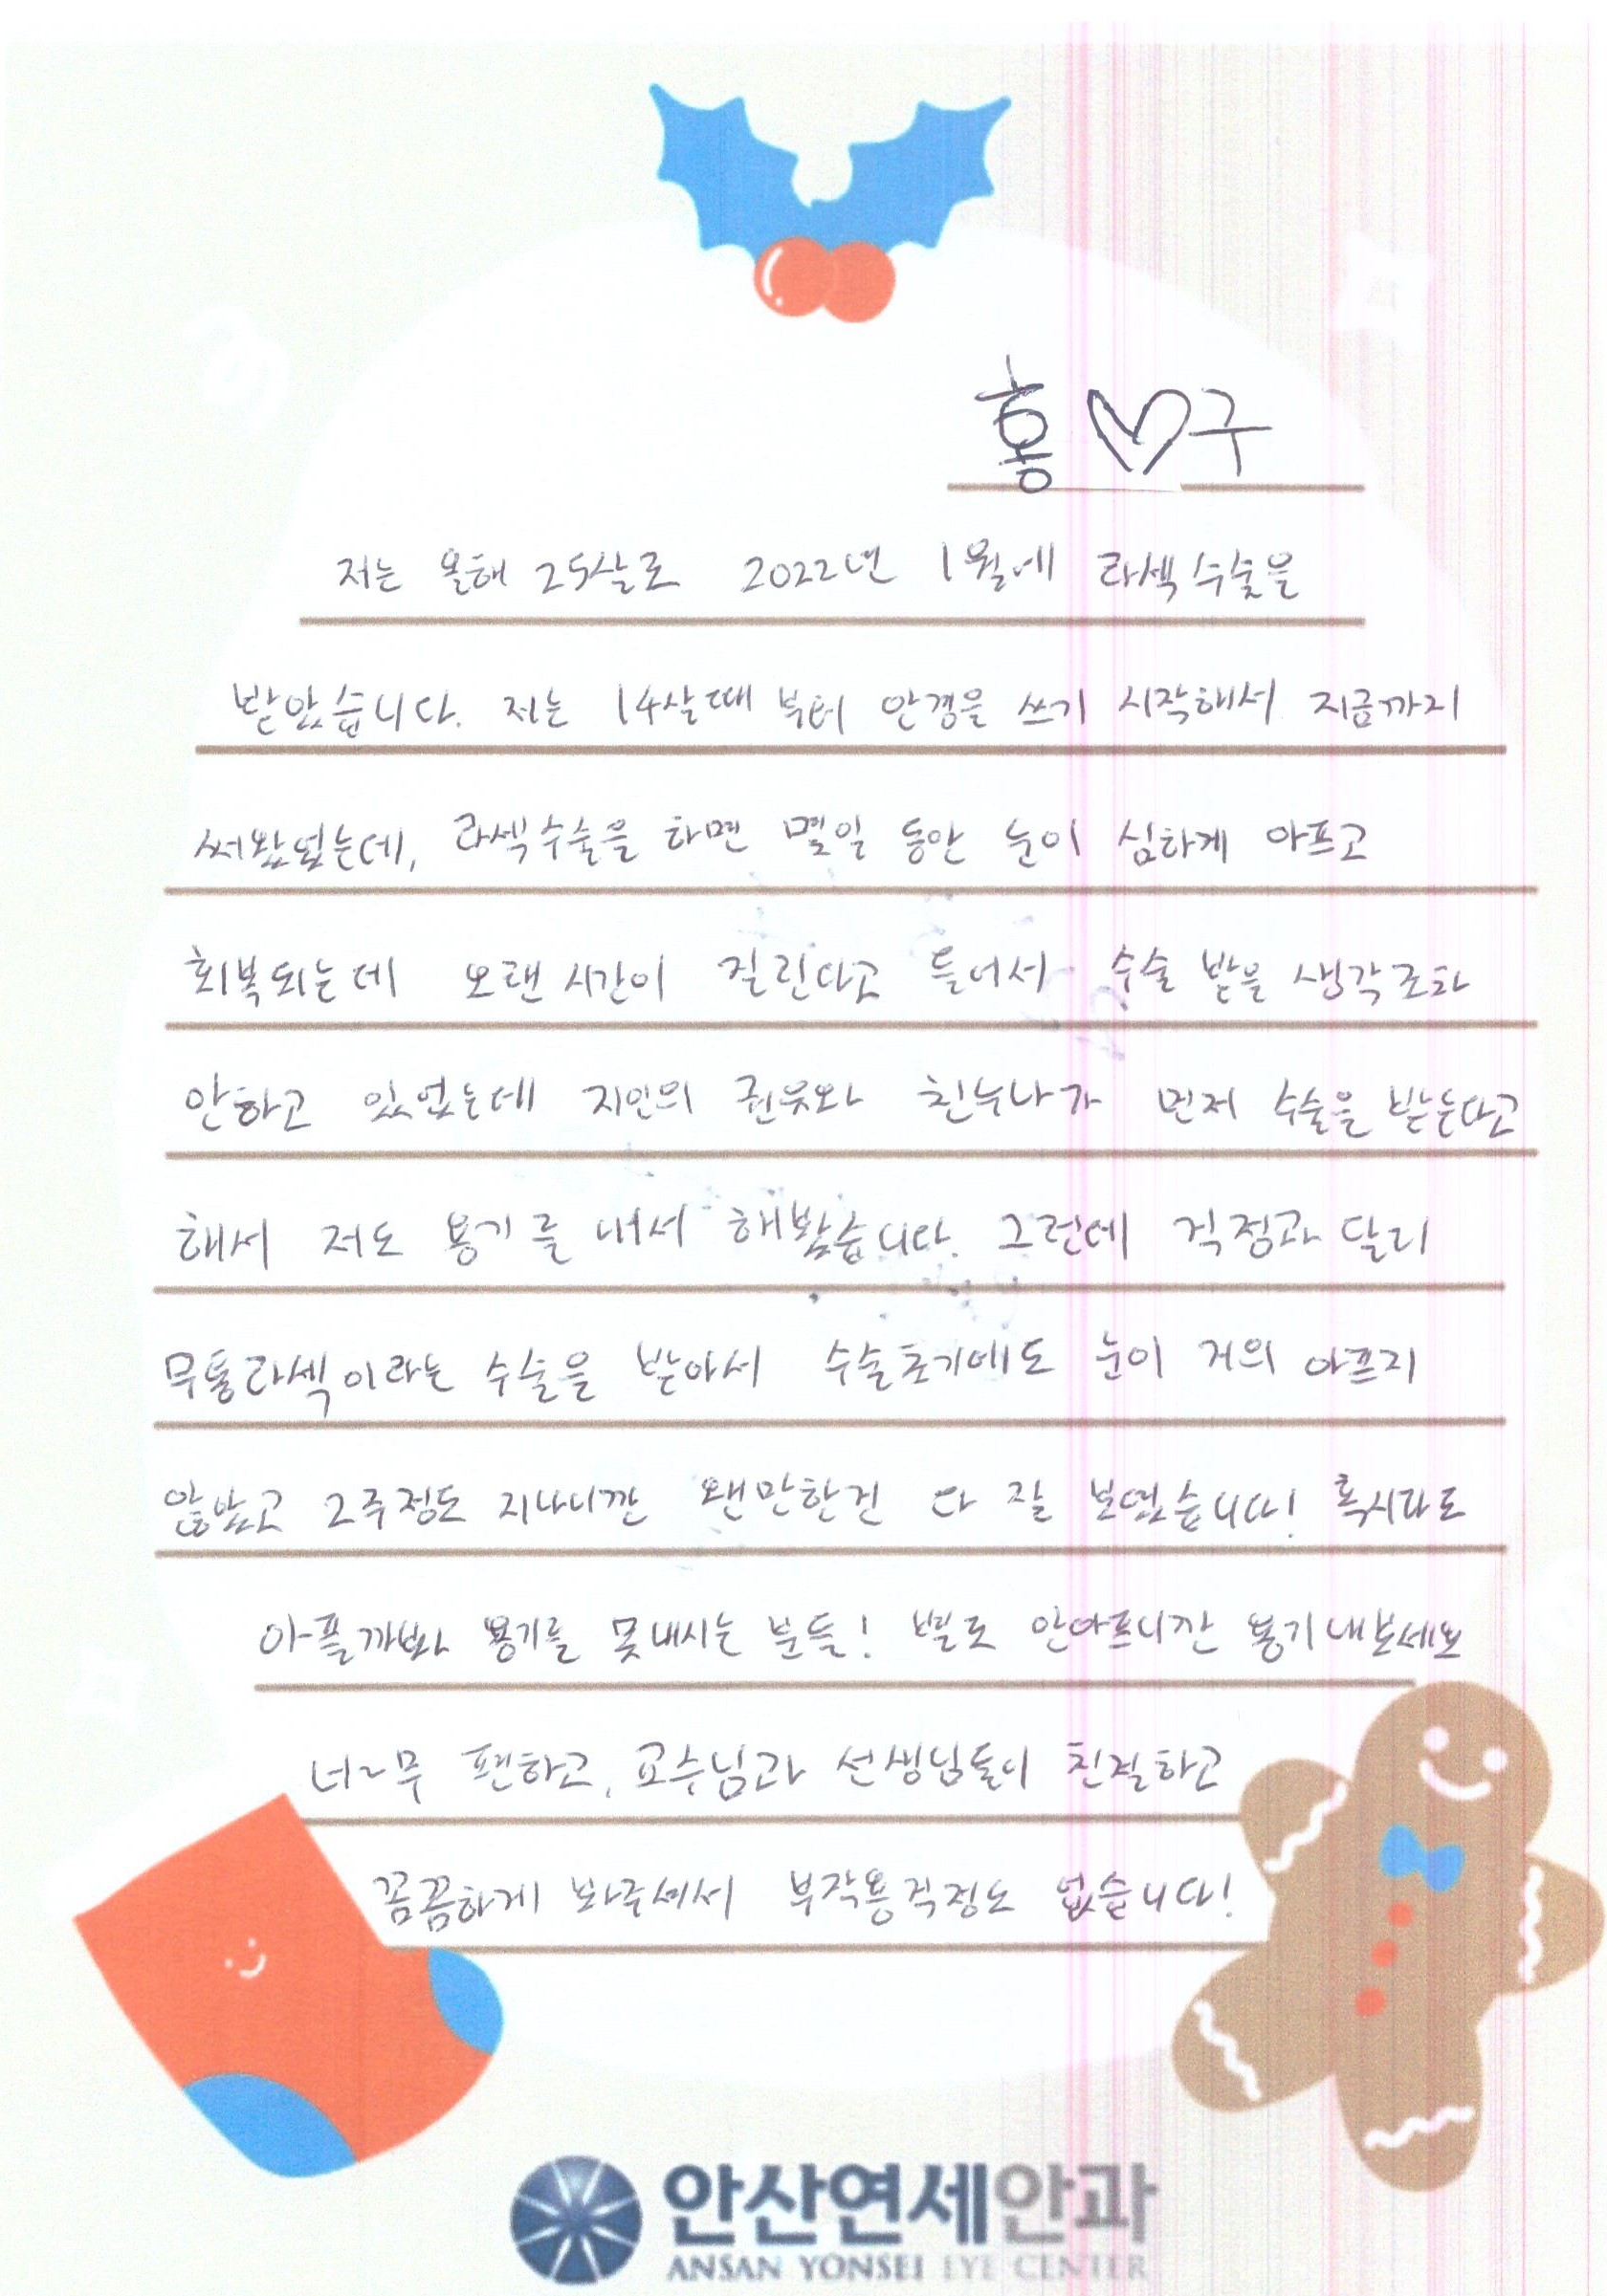 홍♡구
저는 올해 25살로 2022년 1월에 라섹수술을
받았습니다. 저는 14살때 부터 안경을 쓰기 시작해서 지금까지
써왔었는데, 라섹수술을 하면 몇일 동안 눈이 심하게 아프고
회복되는데 오랜 시간이 걸린다고 들어서 수술 받을 생각조차
안하고 있었는데 지인의 권유와 친누나가 먼저 수술을 받는다고
해서 저도 용기를 내서 해봤습니다. 그런데 걱정과 달리
무통라섹이라는 수술을 받아서 수술초기에도 눈이 거의 아프지
않았고 2주정도 지나니깐 왠만한건 다 잘 보였습니다! 혹시라도
아플까봐 용기를 못내시는 분들! 별로 안아프니깐 용기내보세요
너~무 편하고, 교수님과 선생님들이 친절하고
꼼꼼하게 봐주셔서 부작용걱정도 없습니다!
안산연세안과
ANSAN YONSEI EYE CENTER